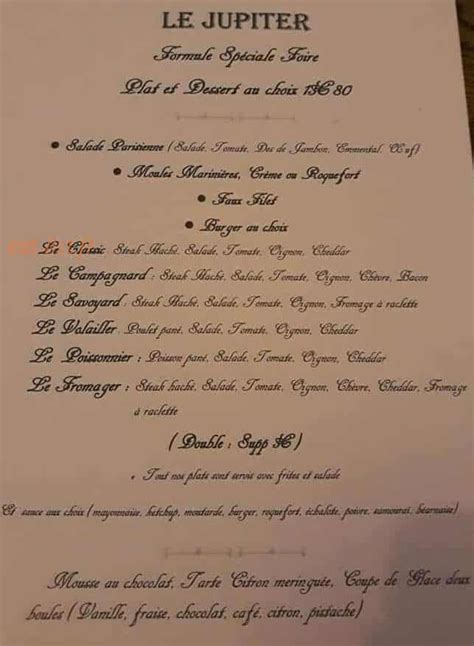 LE JUPITER
Formule Spéciale Foire
Plat et Dessert au choix 80
• Salade Parisienne (Salade, Tomate, Des de Jambon, Emmental, Œuf)
• Moules Marinières, Crème ou Roquefort
• Faux Filet
• Burger au choix
Le Classic: Steak Haché, Salade, Tomate, Oignon, Cheddar
Le Campagnard : Steak Haché, Salade, Tomate, Oignon, Chèvre, Bacon
Le Savoyard : Steak Haché, Salade, Tomate, Oignon, Fromage à raclette
Le Volailler: Poulet pané, Salade, Tomate, Oignon, Cheddar
Le Poissonnier : Poisson pané, Salade, Tomate, Oignon, Cheddar
Le Fromager : Steak haché, Salade, Tomate, Oignon, Chèvre, Cheddar, Fromage
à raclette
(Double : Supp )
• Tout nos plats sont servis avec frites et salade
Et sauce aux choix (mayonnaise, ketchup, moutarde, burger, roquefort, échalote, poivre, samourai, bearnaise)
Mousse au chocolat, Tarte Citron meringuée, Coupe de Glace deux
boules (Vanille, fraise, chocolat, café, citron, pistache)